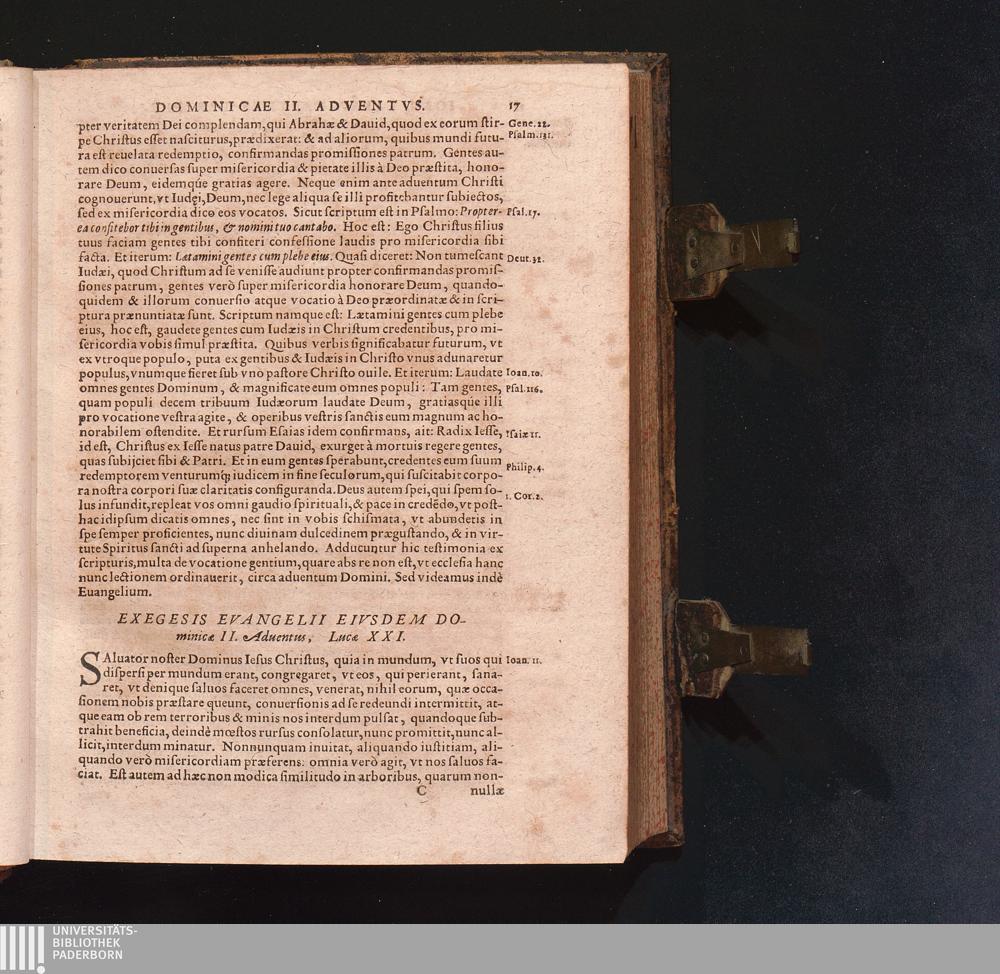 DOMINICAE II. ADVENTVS. 17
pter veritatem Dei complendam, qui Abrahæ & Dauid, quod ex eorum ſtir- Gene.22.
pe Chriſtus eſſet naſciturus, prædixerat: & ad aliorum, quibus mundi futu- Pſalm.131.
ra eſt reuelata redemptio, confirmandas promiſſiones patrum. Gentes au-
tem dico conuerſas ſuper miſericordia & pietate illis à Deo præſtita, hono-
rare Deum, eidemqúe gratias agere. Neque enim ante aduentum Chriſti
cognouerunt, vt Iudęi, Deum, nec lege aliqua ſe illi profitebantur ſubiectos,
ſed ex miſericordia dico eos vocatos. Sicut ſcriptum eſt in Pſalmo: Propter- Pſal.17.
ea confitebor tibi in gentibus, & nomini tuo cantabo. Hoc eſt: Ego Chriſtus filius
tuus faciam gentes tibi confiteri confeſſione laudis pro miſericordia ſibi
facta. Et iterum: Lætamini gentes cum plebe eius. Quaſi diceret: Non tumeſcant Deut.32.
Iudæi, quod Chriſtum ad ſe veniſſe audiunt propter confirmandas promiſ-
ſiones patrum, gentes verò ſuper miſericordia honorare Deum, quando-
quidem & illorum conuerſio atque vocatio à Deo præordinatæ & in ſcri-
ptura prænuntiatæ ſunt. Scriptum namque eſt: Lætamini gentes cum plebe
eius, hoc eſt, gaudete gentes cum Iudæis in Chriſtum credentibus, pro mi-
ſericordia vobis ſimul præſtita. Quibus verbis ſignificabatur futurum, vt
ex vtroque populo, puta ex gentibus & Iudæis in Chriſto vnus adunaretur
populus, vnumque fieret ſub vno paſtore Chriſto ouile. Et iterum: Laudate Ioan.10.
omnes gentes Dominum, & magnificate eum omnes populi: Tam gentes, Pſal.116.
quam populi decem tribuum Iudæorum laudate Deum, gratiasqúe illi
pro vocatione veſtra agite, & operibus veſtris ſanctis eum magnum ac ho-
norabilem oſtendite. Et rurſum Eſaias idem confirmans, ait: Radix Ieſſe, Iſaiæ 11.
id eſt, Chriſtus ex Ieſſe natus patre Dauid, exurget à mortuis regere gentes,
quas ſubijciet ſibi & Patri. Et in eum gentes ſperabunt, credentes eum ſuum
redemptorem venturumq́ue iudicem in fine ſeculorum, qui ſuſcitabit corpo- Philip.4.
ra noſtra corpori ſuæ claritatis configuranda. Deus autem ſpei, qui ſpem ſo-
lus infundit, repleat vos omni gaudio ſpirituali, & pace in credēdo, vt poſt- 1. Cor.2.
hac idipſum dicatis omnes, nec ſint in vobis ſchiſmata, vt abundetis in
ſpe ſemper proficientes, nunc diuinam dulcedinem prægustando, & in vir-
tute Spiritus ſancti ad ſuperna anhelando. Adducuntur hic teſtimonia ex
ſcripturis, multa de vocatione gentium, quare abs re non eſt, vt eccleſia hanc
nunc lectionem ordinauerit, circa aduentum Domini. Sed videamus indè
Euangelium.
EXEGESIS EVANGELII EIVSDEM DO-
minicæ II. Aduentus, Lucæ XXI.
SAluator noſter Dominus Ieſus Chriſtus, quia in mundum, vt ſuos qui Ioan.11.
diſperſi per mundum erant, congregaret, vt eos, qui perierant, ſana-
ret, vt denique ſaluos faceret omnes, venerat, nihil eorum, quæ occa-
ſionem nobis præſtare queunt, conuerſionis ad ſe redeundi intermittit, at-
que eam ob rem terroribus & minis nos interdum pulſat, quandoque ſub-
trahit beneficia, deindè mœſtos rurſus conſolatur, nunc promittit, nunc al-
licit, interdum minatur. Nonnunquam inuitat, aliquando iuſtitiam, ali-
quando verò miſericordiam præferens: omnia verò agit, vt nos ſaluos fa-
ciat. Eſt autem ad hæc non modica ſimilitudo in arboribus, quarum non-
C nullæ
UNIVERSITÄTS-
BIBLIOTHEK
PADERBORN